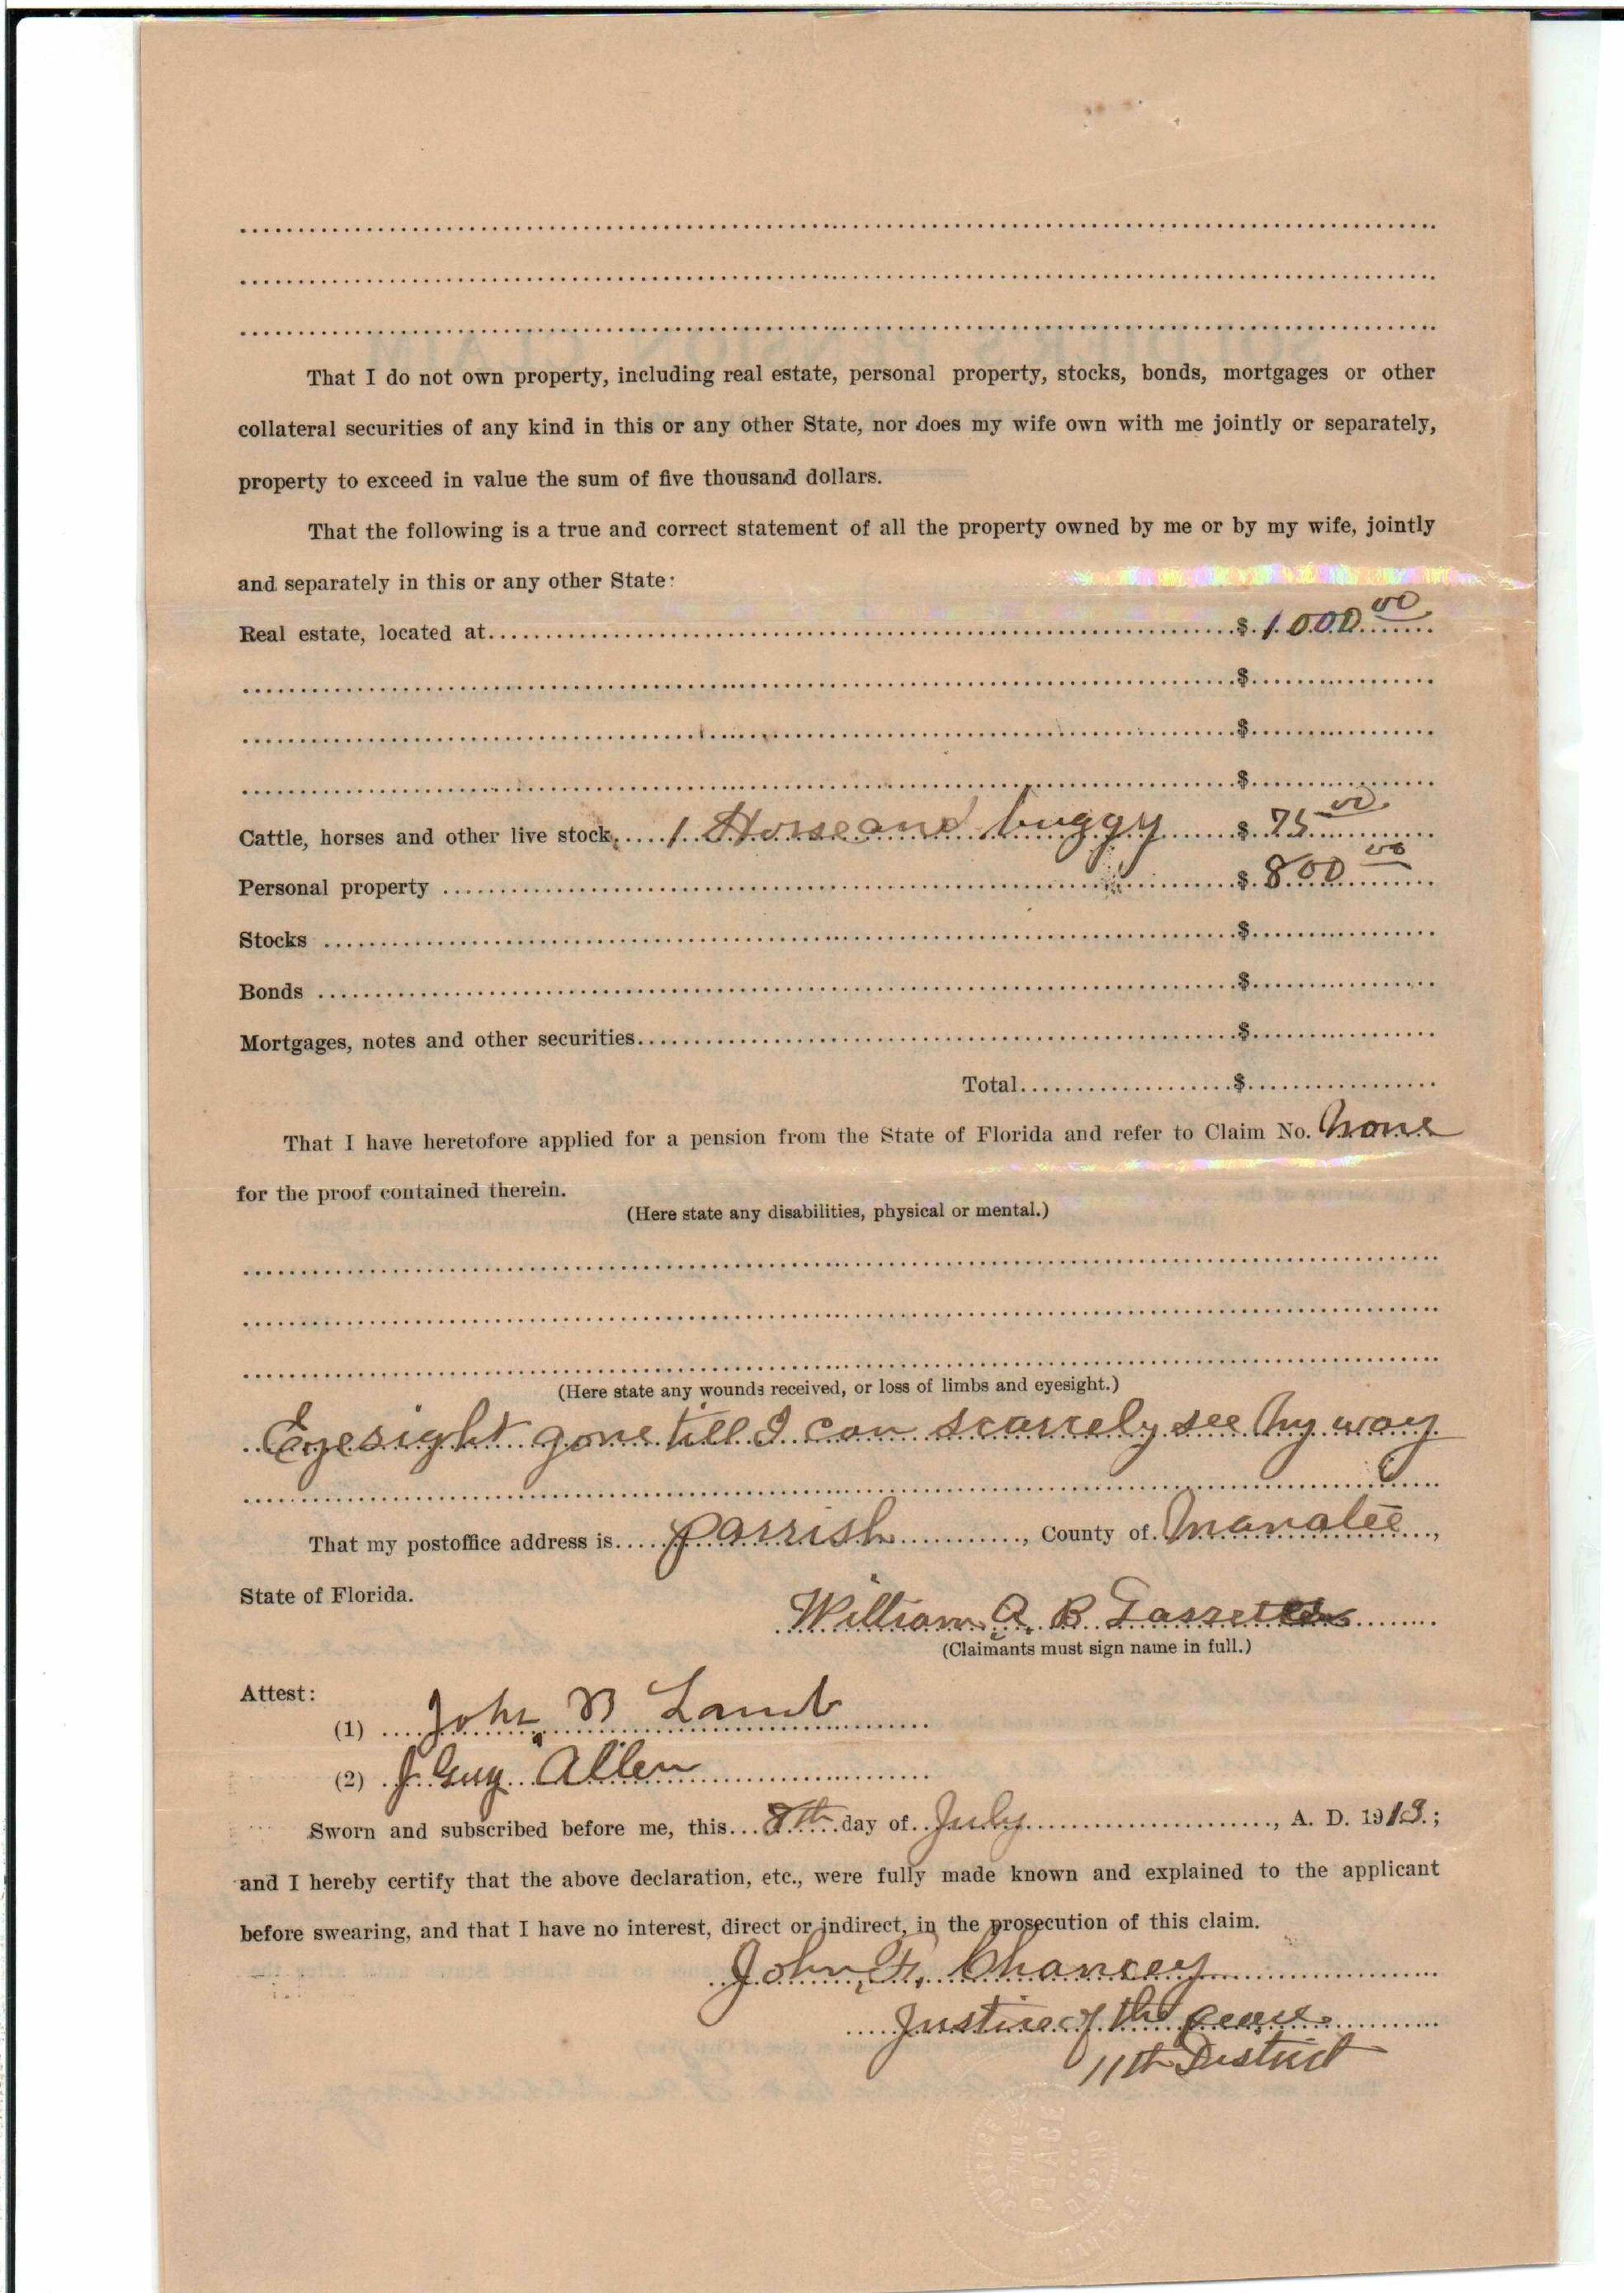 That I do not own property, including real estate, personal property, stocks, bonds, mortgages or other
collateral securities of any kind in this or any other State, nor does my wife own with me jointly or separately,
property to exceed in value the sum of five thousand dollars.
That the following is a true and correct statement of all the property owned by me or by my wife, jointly
and separately in this or any other State:
Real estate, located at $ 1000 00
$
$
$
Cattle, horses and other live stock. 1 Horse and buggy $ 75 00
Personal property $ 800 00
Stocks $
Bonds $
Mortgages, notes and other securities $
Total $
That I have heretofore applied for a pension from the State of Florida and refer to Claim No. None
for the proof contained therein.
(Here state any disabilities, physical or mental.)
(Here state any wounds received, or loss of limbs and eyesight.)
Eyesight gone till I can scarcely see My way
That my postoffice address is Parrish, County of Manatee,
State of Florida.
William A. B.
(Claimants must sign name in full.)
Attest:
(1) John B Lamb
(2) J. Guy Allen
Sworn and subscribed before me, this 8th day of July, A. D. 1913.;
and I hereby certify that the above declaration, etc., were fully made known and explained to the applicant
before swearing, and that I have no interest, direct or indirect, in the prosecution of this claim.
John F. Chancey
Justice of the peace
11th District